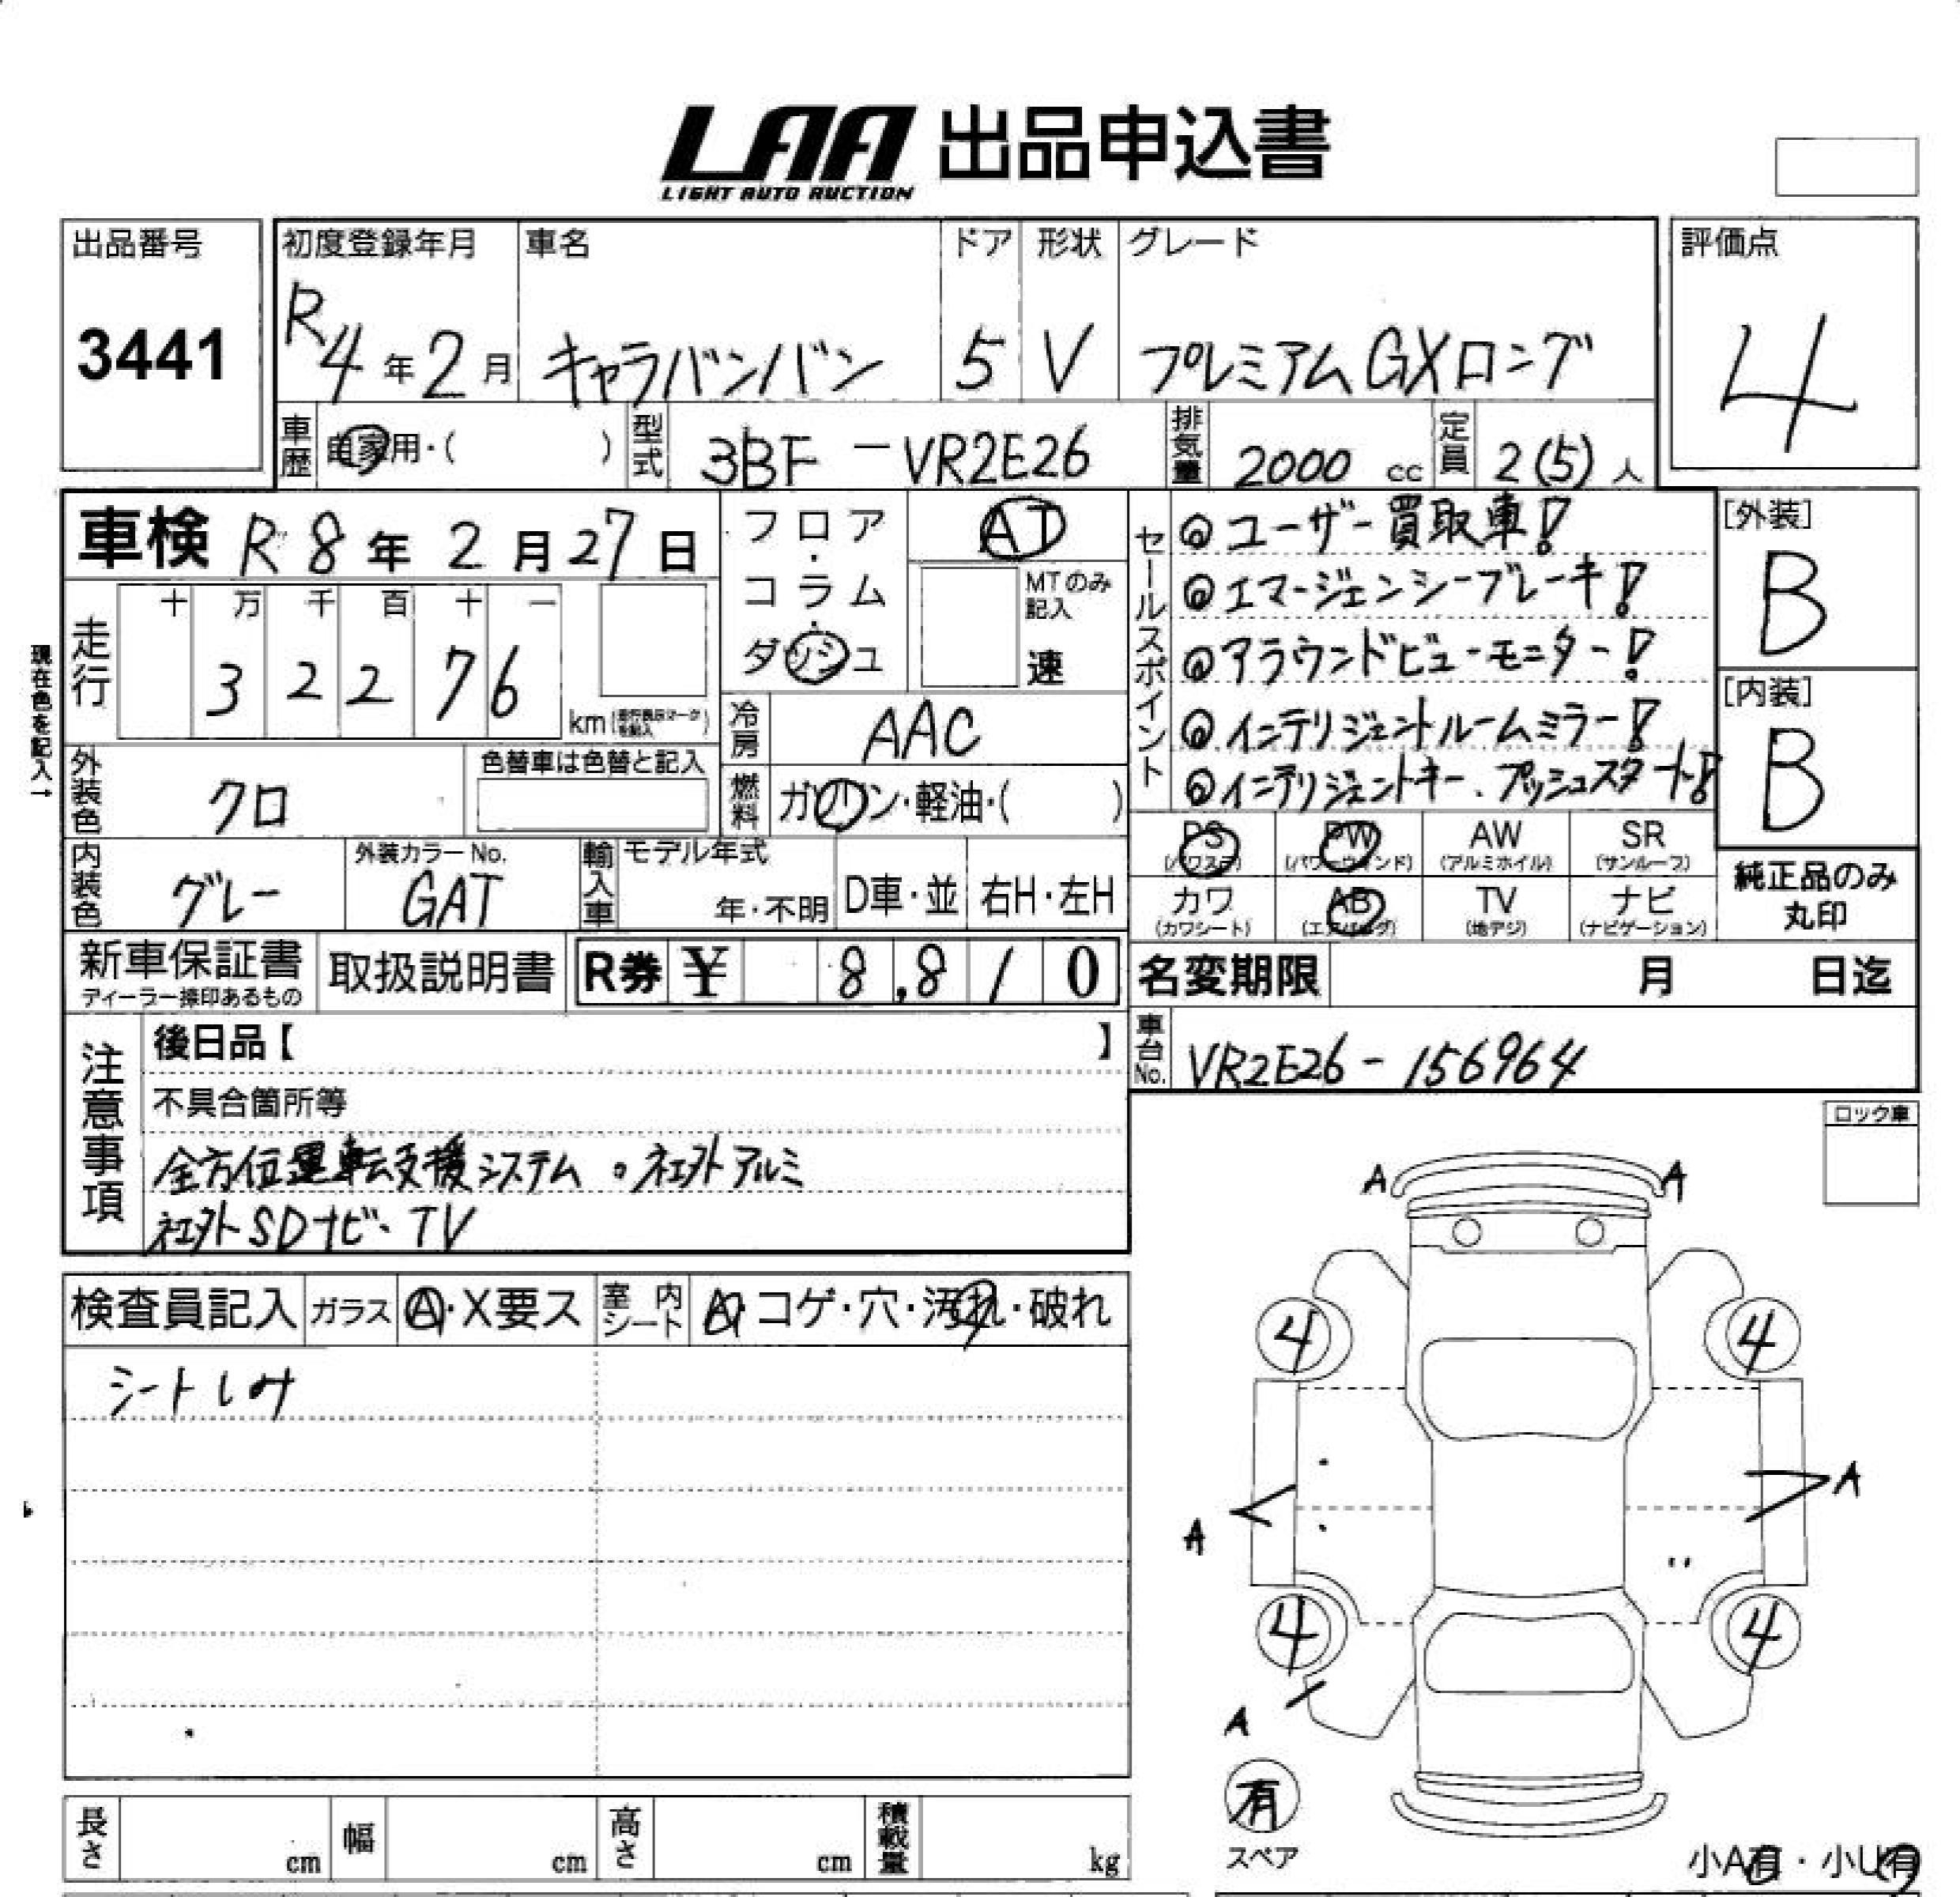 LAA 出品申込書
LIGHT AUTO AUCTION
出品番号
3441
初度登録年月
R4年2月
車名
キャラバンバン
ドア
5
形状
V
グレード
プレミアムGXロング
評価点
4
車歴
自家用・( )
型式
3BF-VR2E26
排気量
2000 cc
定員
2(5)人
車検 R8年2月27日
フロア・コラム・ダッシュ
AT
MTのみ記入
速
現在色を記入→
走行
十 万 千 百 十 一
3 2 2 7 6
km(走行表示マークを記入)
冷房
AAC
外装色
クロ
色替車は色替と記入
燃料
ガソリン・軽油・( )
内装色
グレー
外装カラーNo.
GAT
輸入車
モデル年式
年・不明
D車・並
右H・左H
セールスポイント
◎ユーザー買取車!
◎エマージェンシーブレーキ!
◎アラウンドビューモニター!
◎インテリジェントルームミラー!
◎インテリジェントキー、プッシュスタート!
[外装]
B
[内装]
B
PS
(パワステ)
PW
(パワーウィンド)
AW
(アルミホイル)
SR
(サンルーフ)
カワ
(カワシート)
AB
(エアバッグ)
TV
(地デジ)
ナビ
(ナビゲーション)
純正品のみ
丸印
新車保証書
ディーラー捺印あるもの
取扱説明書
R券 ¥ 8,810
名変期限 月 日迄
車台No.
VR2E26-156964
注意事項
後日品【 】
不具合箇所等
全方位運転支援システム。社外アルミ
社外SDナビ、TV
ロック車
検査員記入
ガラス
A・X要ス
室内シート
A・コゲ・穴・汚れ・破れ
シートしみ
A A
4 4
A A
4 4
A
有
スペア
長さ cm
幅 cm
高さ cm
積載量 kg
小A有・小U有